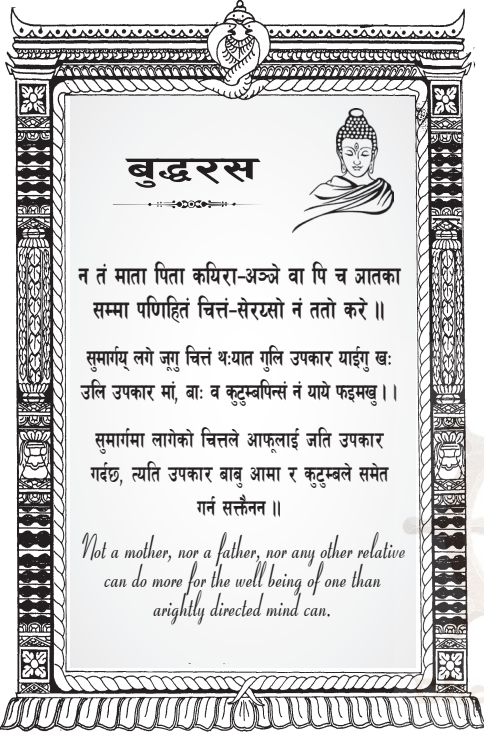 बुद्धरस
न तं माता पिता कयिरा-अञ्ञे वा पि च ञातका
सम्मा पणिहितं चित्तं-सेरय्सो नं ततो करे ॥
सुमार्गय् लगे जूगु चित्तं थःयात गुलि उपकार याईगु खः
उलि उपकार मां, बाः व कुटुम्बपिन्सं नं याये फइमखु।।
सुमार्गमा लागेको चित्तले आफूलाई जति उपकार
गर्दछ, त्यति उपकार बाबु आमा र कुटुम्बले समेत
गर्न सक्तैनन ॥
Not a mother, nor a father, nor any other relative
can do more for the well being of one than
arightly directed mind can.